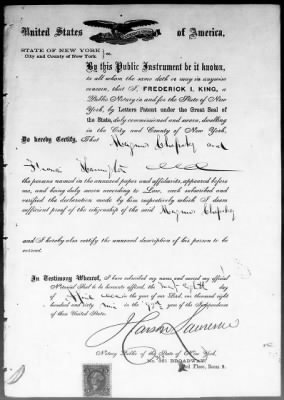 United States of America.
STATE OF NEW YORK
City and County of New York. } ss.
By this Public Instrument be it known,
to all whom the same doth or may in anywise
concern, that I, FREDERICK I. KING, a
Public Notary in and for the State of New
York, by Letters Patent under the Great Seal of
the State, duly commissioned and sworn, dwelling
in the City and County of New York,
Do hereby Certify, That Magnus and
the persons named in the annexed paper and affidavits, appeared before
me, and being duly sworn according to Law, each subscribed and
verified the declaration made by him respectively which I deem
sufficient proof of the citizenship of the said Magnus
and I hereby also certify the annexed description of his person to be
correct.
In Testimony Whereof, I have subscribed my name and caused my official
Notarial Seal to be hereunto affixed, the day
of in the year of our Lord, one thousand eight
hundred and sixty in the year of the Independence
of these United States.
Lawrence
Notary Public of the State of New York,
BROADWAY,
Place, Room 9.